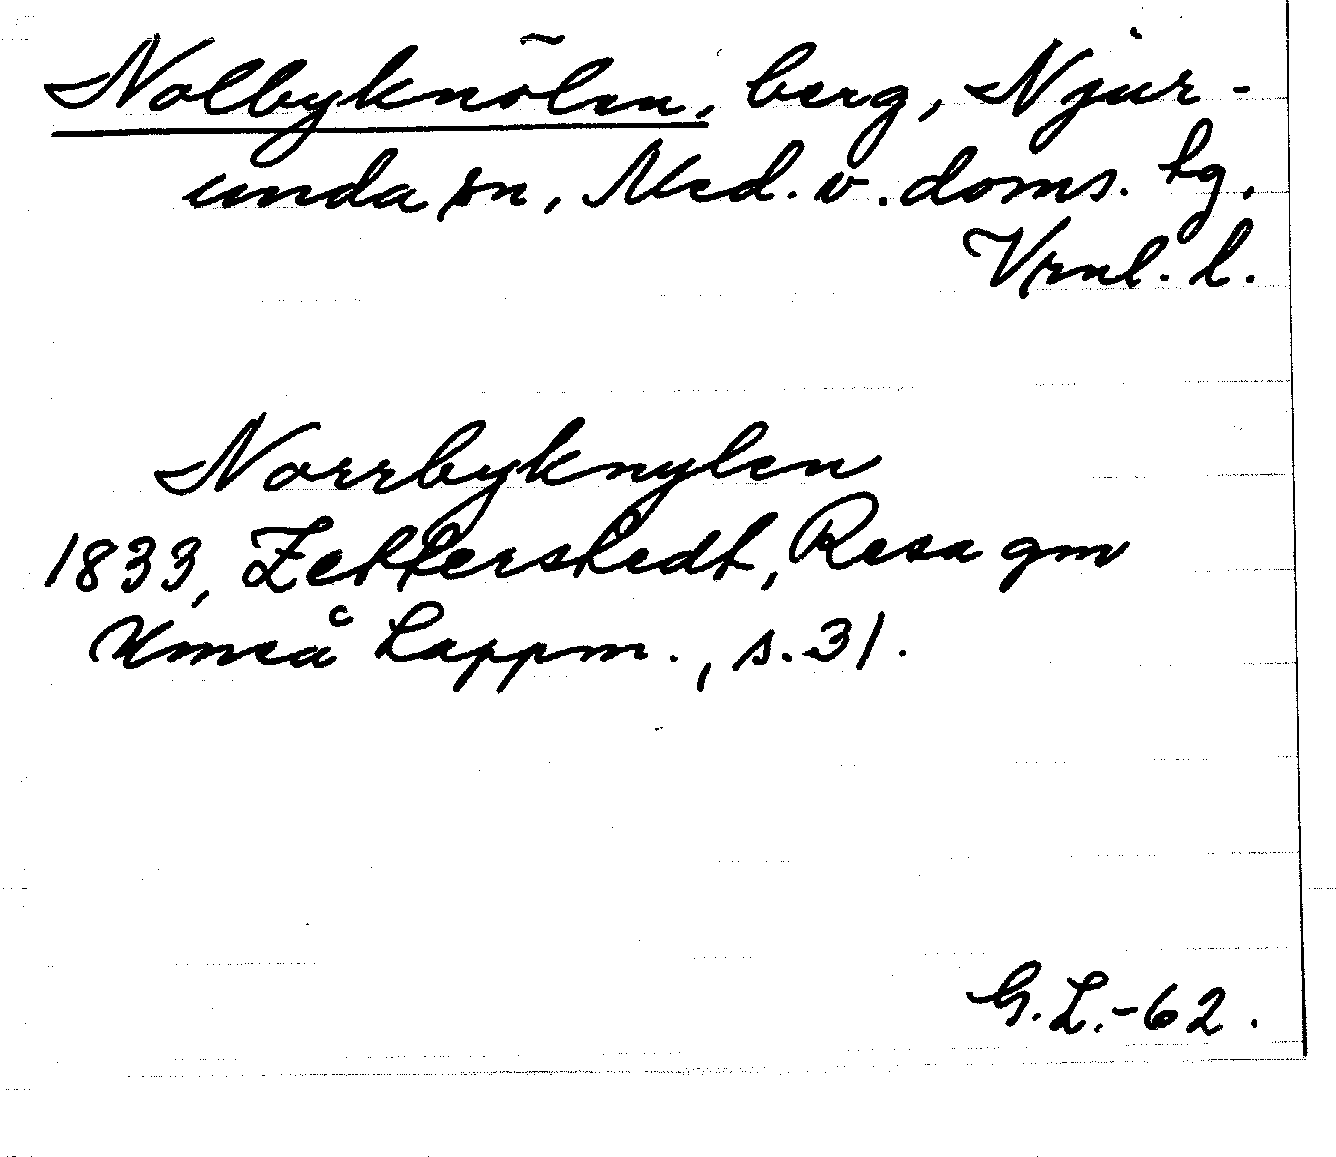 Nolbyknölen, berg, Njur-
unda sn, Med. v. doms. hg,
Vrnl. l.
Norrbyknylen
1833, Zetterstedt, Resa gm
Umeå Lappm., s. 31.
G. L. -62.